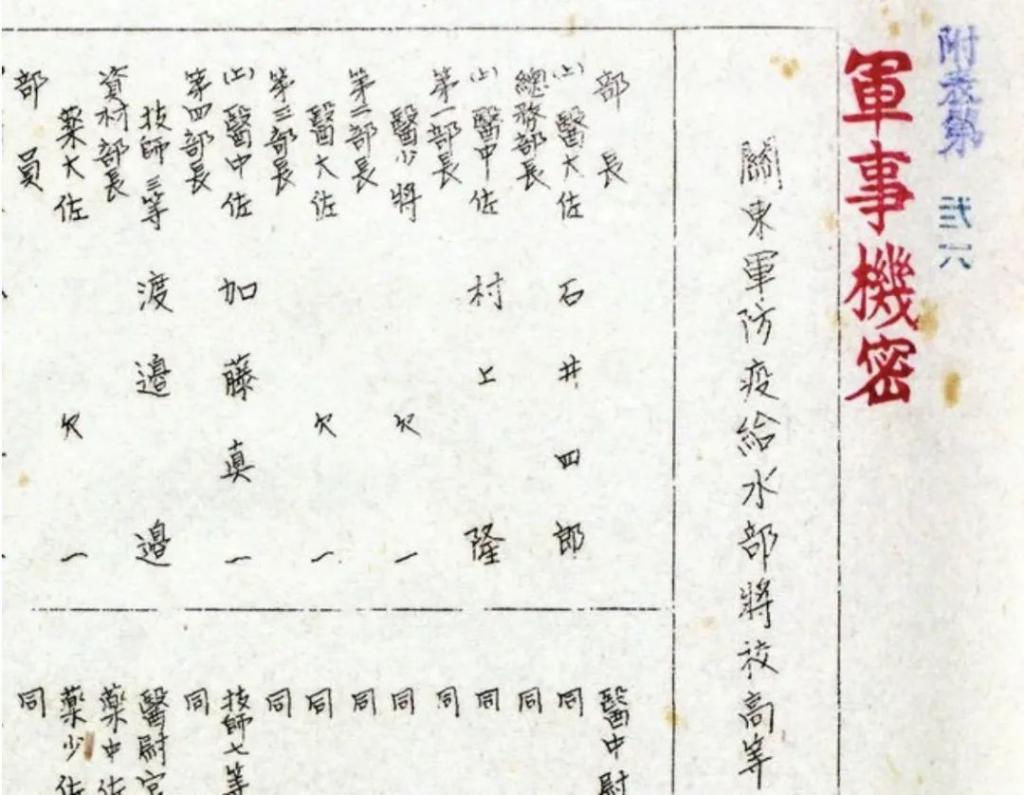 附表第 弐六
軍事機密
關東軍防疫給水部將校高等
部長
(上)醫大佐 石井四郎
總務部長
(上)醫中佐 村上隆
第一部長
醫少將 欠一
第二部長
醫大佐 欠一
第三部長
(上)醫中佐 加藤真一
第四部長
技師三等 渡邊邊
資材部長
藥大佐 欠一
部員
醫中尉
同
同
同
同
同
同
同
同
技師七等
同
醫尉官
藥中佐
藥少佐
同